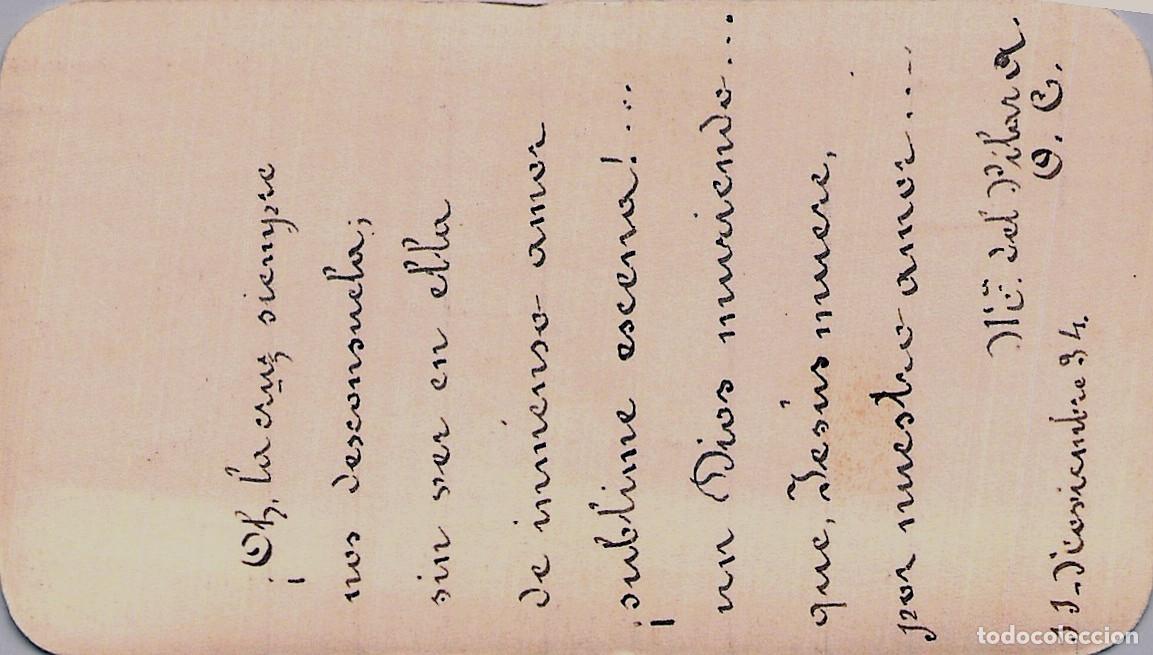 ¡Oh, la cruz siempre
nos desconsuela;
sin ver en ella
de inmenso amor
¡sublime escena!...
un Dios muriendo...
que, Jesús muere,
por nuestro amor....
Mª. del Pilar
O. C.
11-Diciembre 34.
todocoleccion